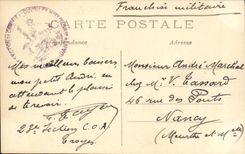 Franchise militaire
CARTE POSTALE
Correspondance
Mes meilleurs baisers
mon petit André en
attendant le plaisir
de te voir.
23e Section C.O.A.
Troyes
Monsieur André Marchal
chez Mr V. Tassard
46 rue des Ponts
Nancy
(Meurthe et Mlle)